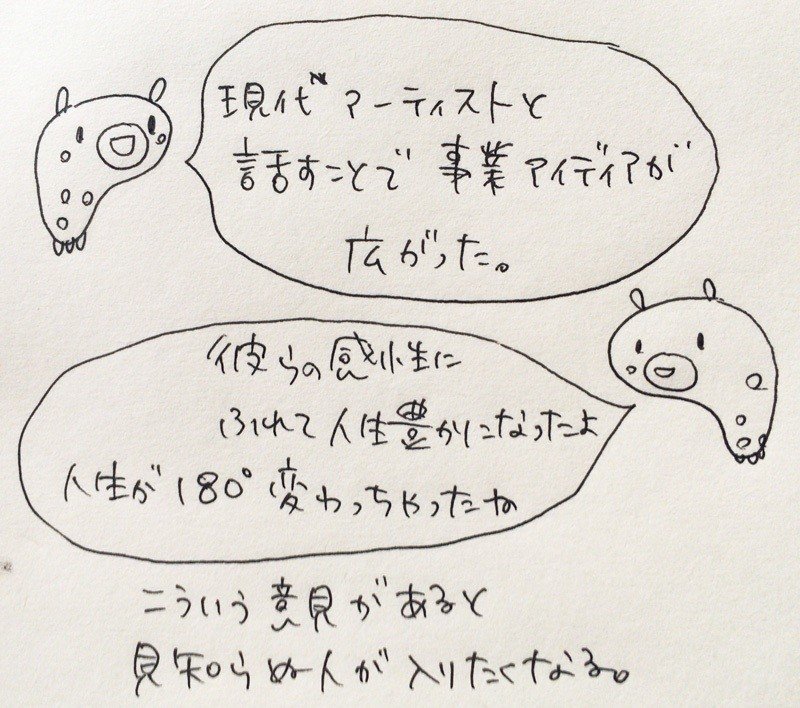 現代アーティストと
話すことで 事業アイディアが
広がった。
彼らの感性に
ふれて人生豊かになったよ
人生が180°変わっちゃったね
こういう意見があると
見知らぬ人が入りたくなる。